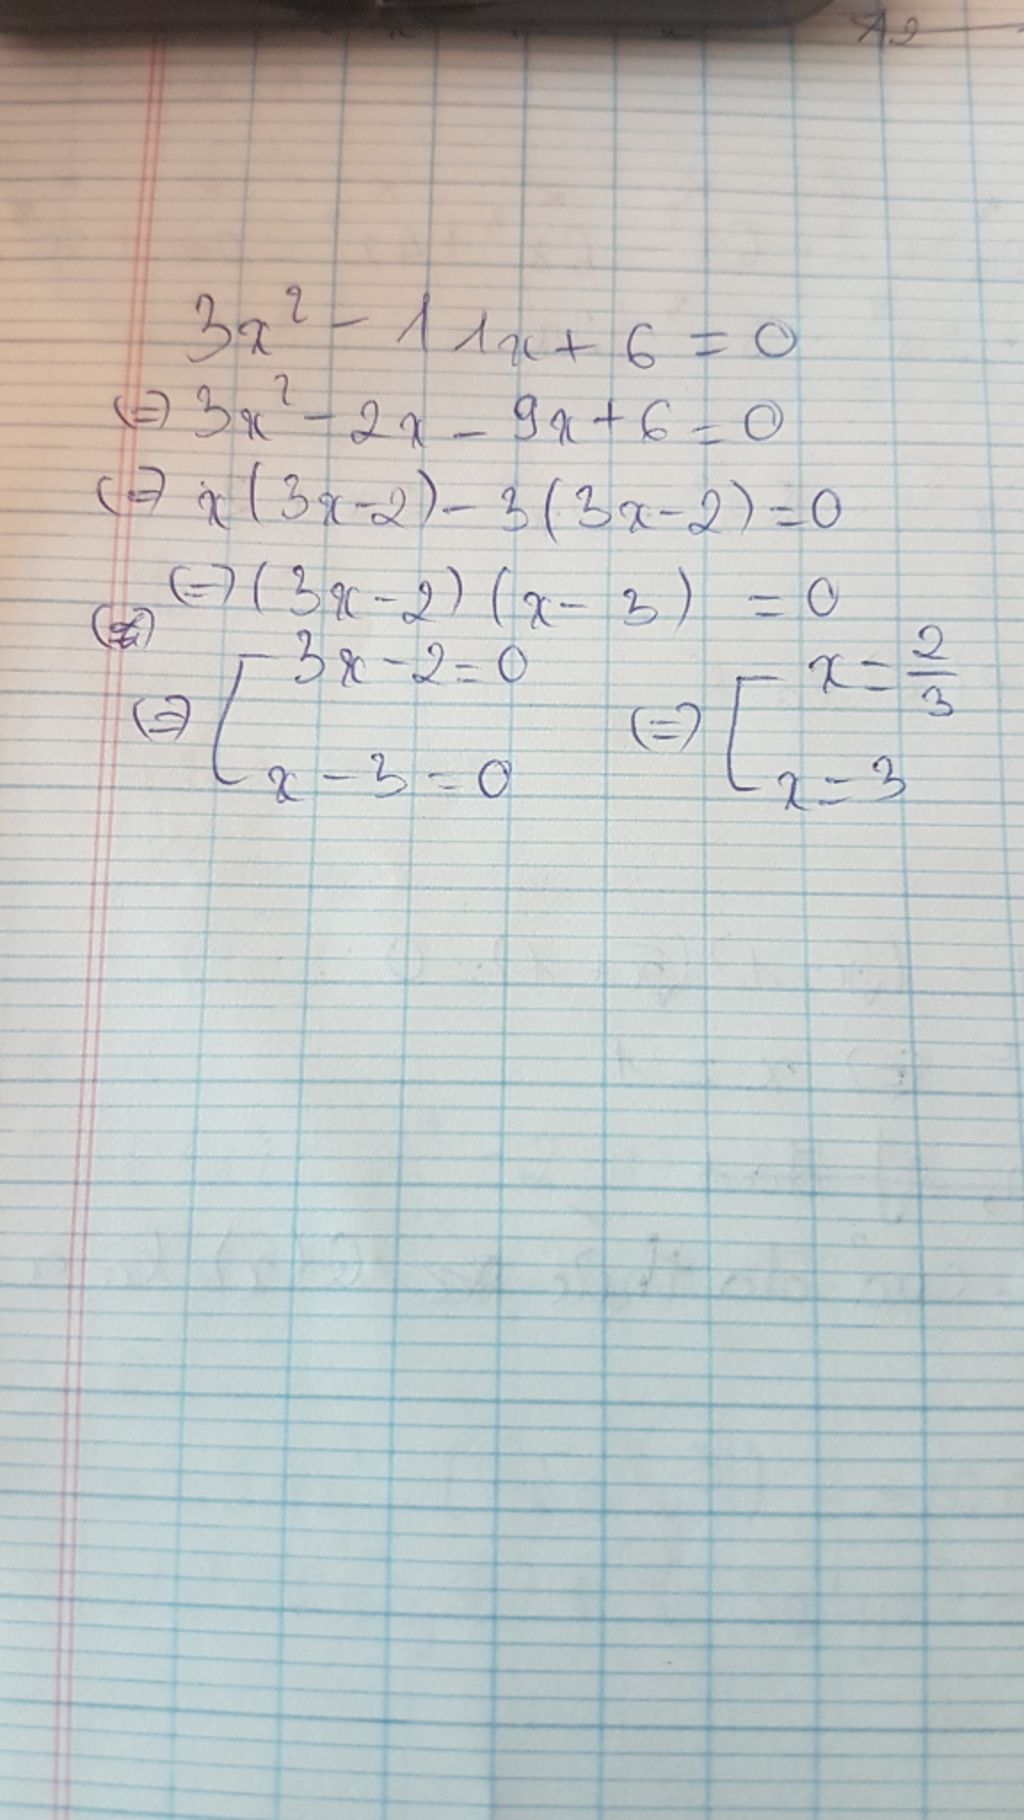 3x² - 11x + 6 = 0
(=) 3x² - 2x - 9x + 6 = 0
(=) x(3x-2) - 3(3x-2) = 0
(=) (3x-2)(x-3) = 0
(=) [ 3x-2=0 (=) [ x = 2/3
x-3=0 x=3